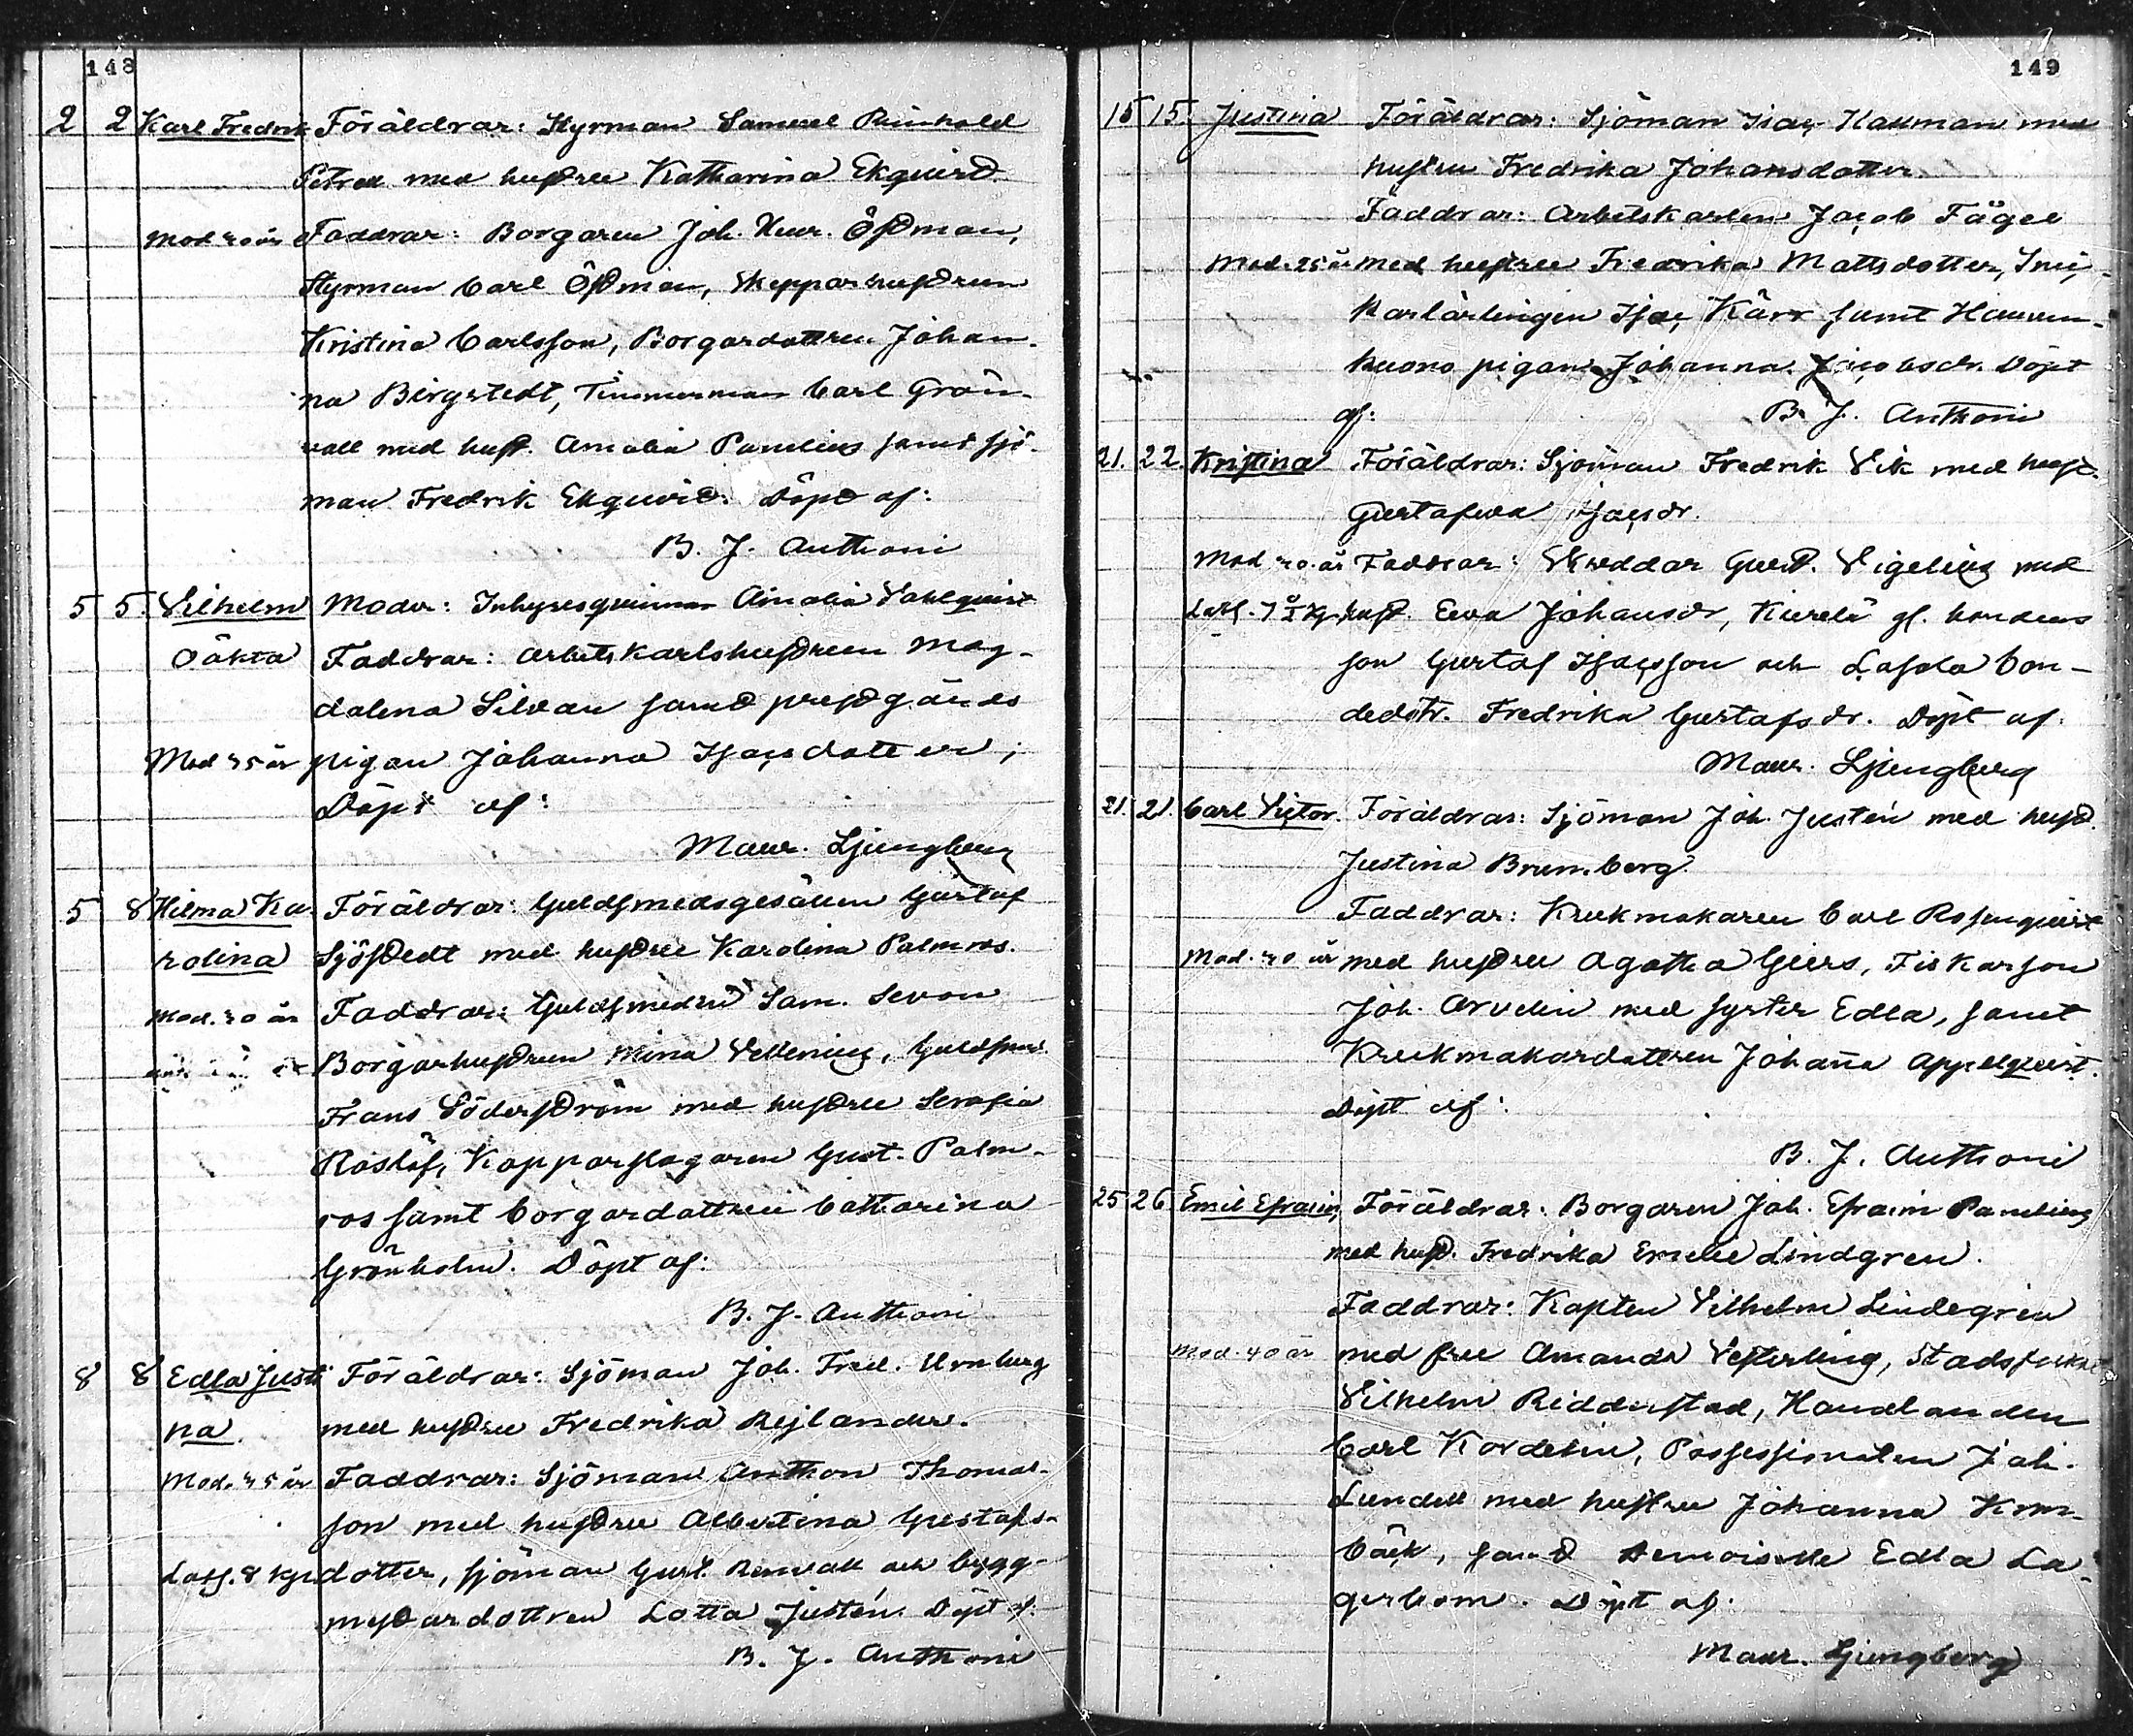 148
2 2 Karl Fredrik Föräldrar: Styrman Samuel Reinhold
Petrell med hustru Katharina Ekquist.
Mod 30 år Faddrar: Borgaren Joh. Henr. Östman,
Styrman Carl Östman, Skepparhustrun
Kristina Carlsson, Borgardottren Johan-
na Bergstedt, Timmerman Carl Grön-
vall med hust. Amalia Panelius samt sjö-
man Fredrik Ekqvist. Döpt af:
B. J. Anthoni
5 5. Vilhelm Moder: Inhysesqvinnan Amalia Vahlquist
Oäkta Faddrar: Arbetskarlshustrun Mag-
dalena Silvan samt prestgårds
Mod 35 år pigan Johanna Isacsdotter;
Döpt af:
Maur. Ljungberg
5 8 Hilma Ka- Föräldrar: Guldsmedsgesällen Gustaf
rolina Sjöstedt med hustru Karolina Palmros.
Mod. 30 år Faddrar: Guldsmeden Sam. Sevon
Borgarhustrun Mina Vellenius, Guldsmed.
Frans Söderström med hustru Serafia
Roslöf, Kopparslagaren Gust. Palm-
ros samt borgardottren Catharina
Grönholm. Döpt af:
B. J. Anthoni
8 8 Edla Justi Föräldrar: Sjöman Joh. Fred. Urnberg
na. med hustru Fredrika Rejlander.
Mod. 35 år Faddrar: Sjöman Anthon Thomas-
son med hustru Albertina Gustafs-
Lass. 8 kgr dotter, sjöman Gust. Renvall och bygg-
mästardottren Lotta Justén. Döpt af.
B. J. Anthoni
149
15 15. Justina Föräldrar: Sjöman Isac Hauman med
hustru Fredrika Johansdotter
Faddrar: Arbetskarlen Jacob Fägel
Mod. 25 år med hustru Fredrika Mattsdotter,
Karlärlingen Isac Kärr samt
pigan Johanna Jacobsdr. Döpt
af: B. J. Anthoni
21. 22. Kristina Föräldrar: Sjöman Fredrik Vik med hust.
Gustafva Isacsdr.
Mod 30 år Faddrar: Skreddar Gust. Vigelius med
hust. Eva Johansdr, gl. bondens
son Gustaf Isacsson och bon-
dedotr. Fredrika Gustafsdr. Döpt af.
Maur. Ljungberg
21. 21. Carl Victor. Föräldrar: Sjöman Joh. Justén med hust.
Justina Brumberg.
Faddrar: Krukmakaren Carl Rosenquist
Mod. 30 år med hustru Agatha Giers, Fiskarson
Joh. Arvelin med syster Edla, samt
Krukmakardottren Johaña Appelquist.
Döpt af:
B. J. Anthoni
25 26 Emil Efraim, Föräldrar. Borgaren Joh. Efraim Panelius
med hust. Fredrika Emelie Lindgren.
Faddrar: Kapten Vilhelm Lindegren
Mod. 40 år med fru Amanda Vesterling,
Vilhelm Ridderstad, Handlanden
Carl Kordelin, Possessionaten Joh.
Lundell med hustru Johanna Kron-
bäck, samt Demoiselle Edla La-
gerbom. Döpt af.
Maur. Ljungberg